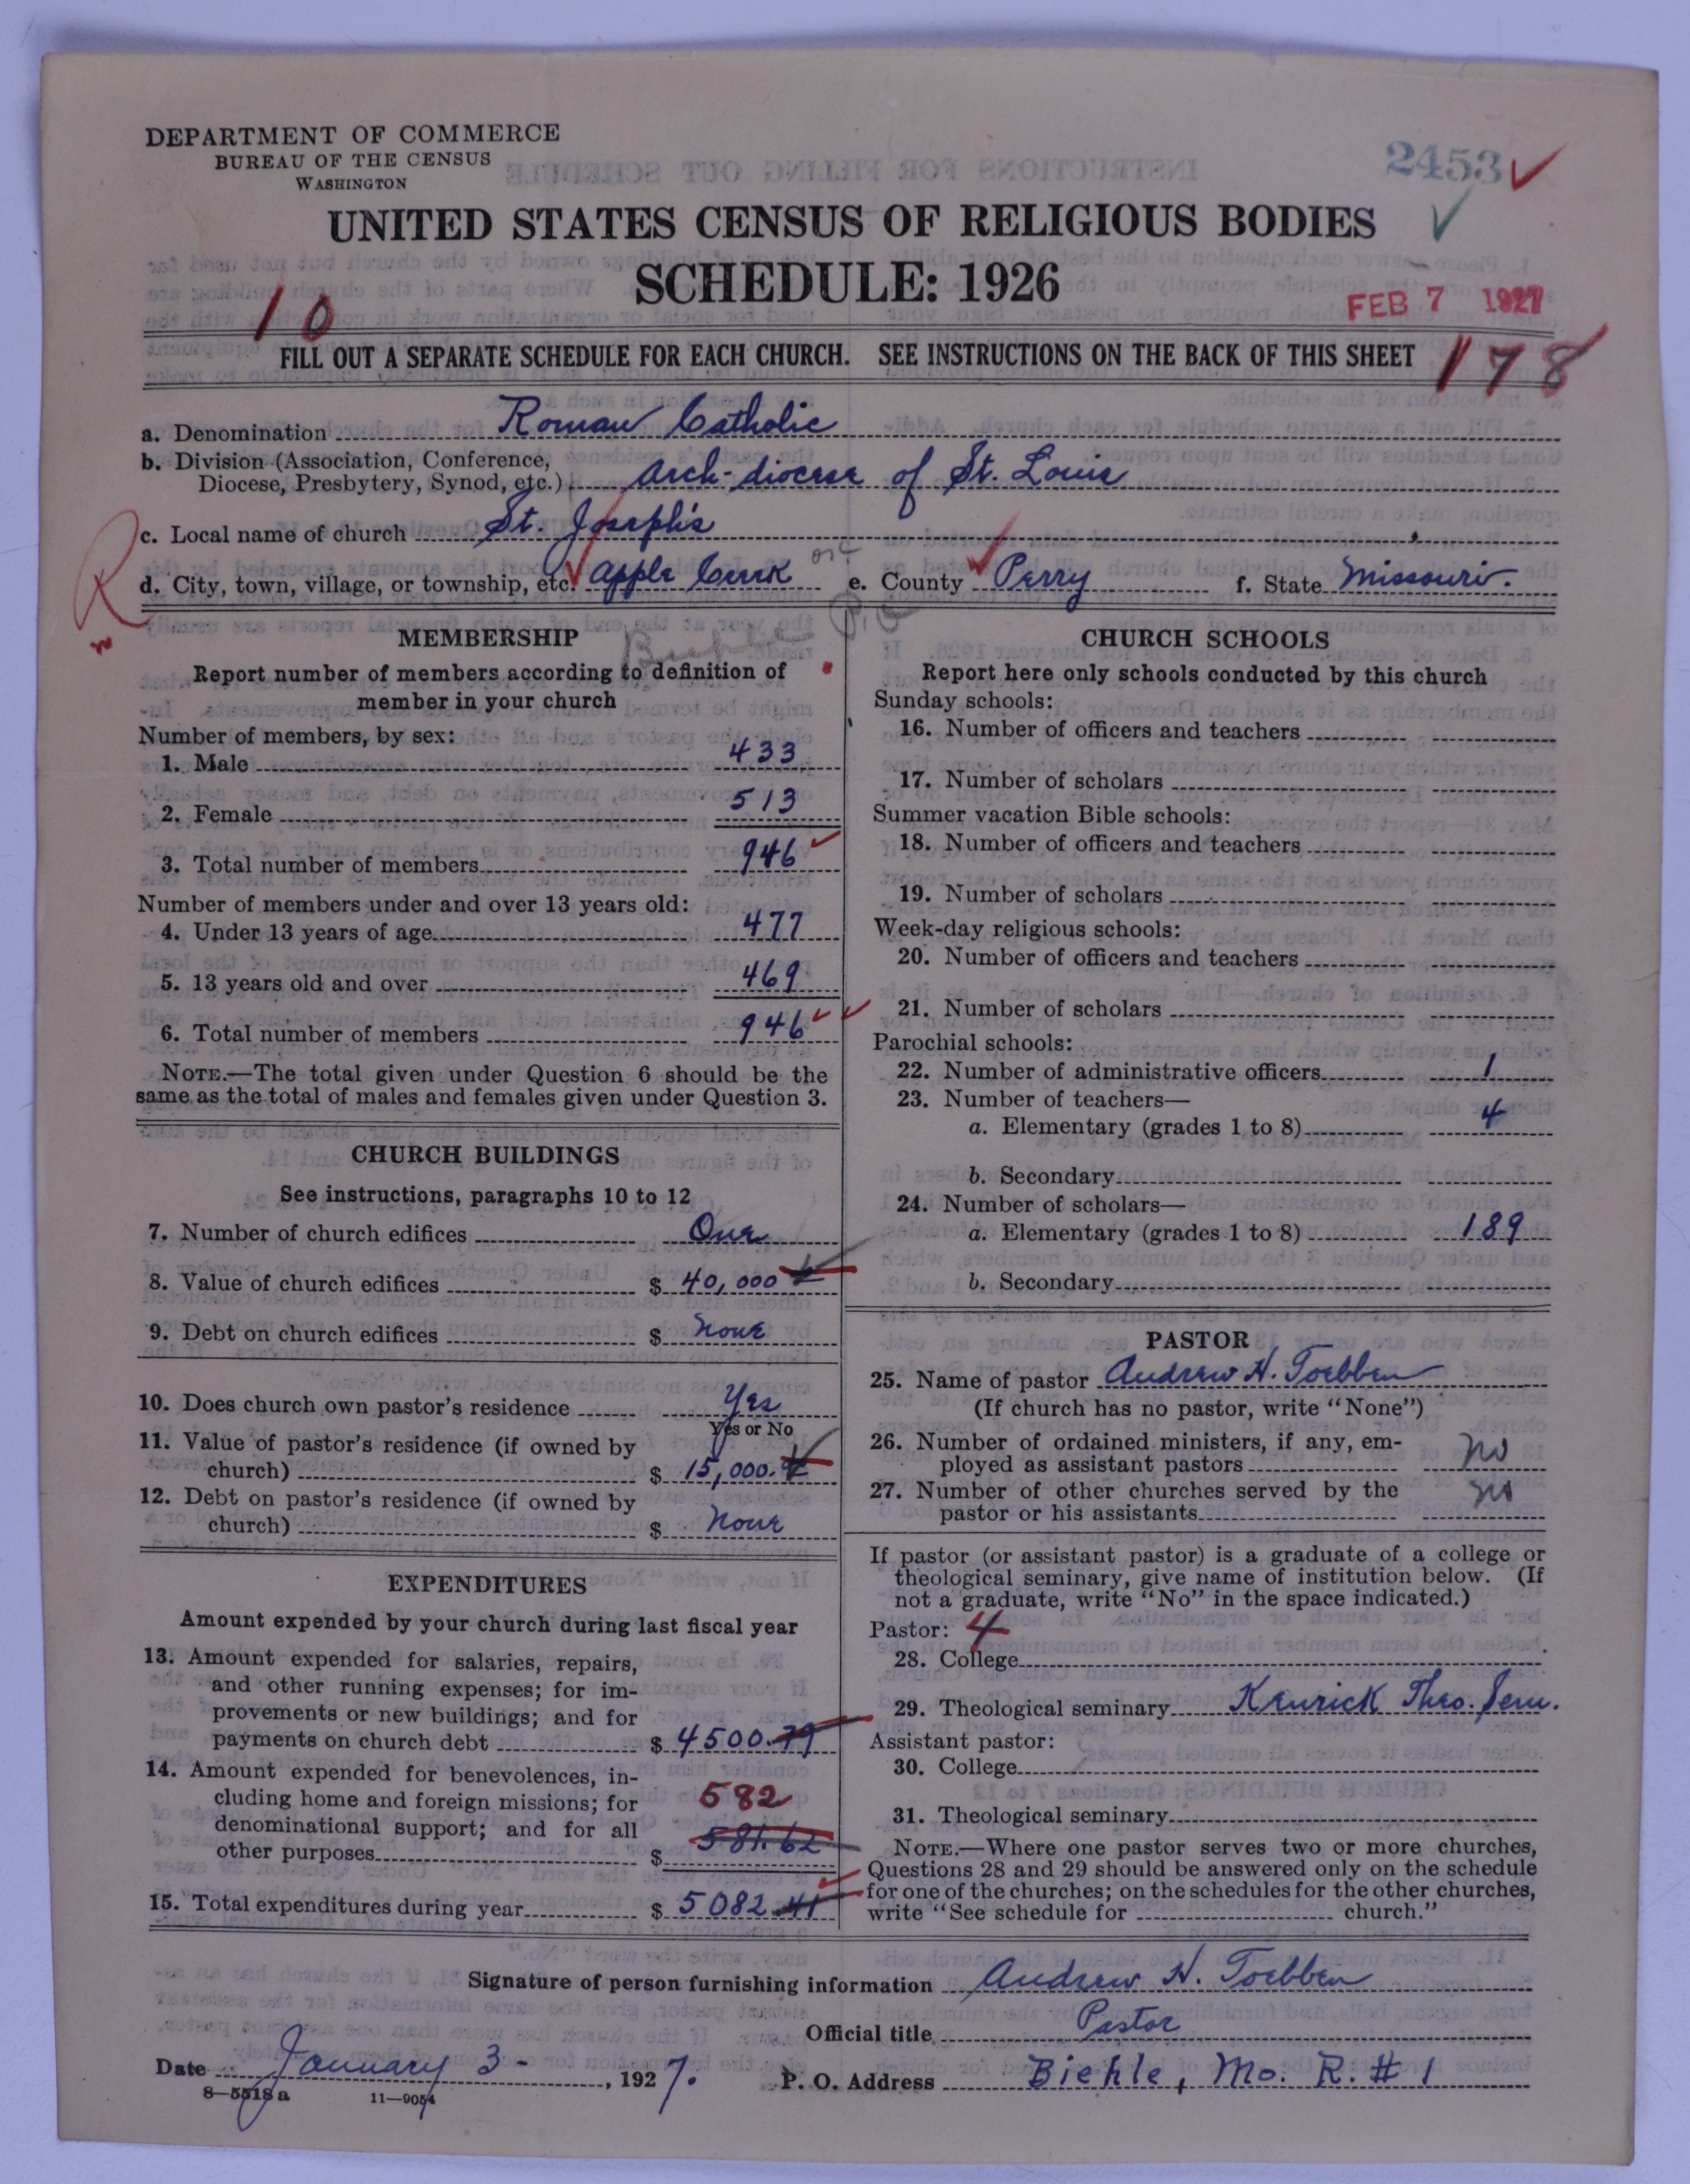 DEPARTMENT OF COMMERCE
BUREAU OF THE CENSUS
WASHINGTON
2453
UNITED STATES CENSUS OF RELIGIOUS BODIES
SCHEDULE: 1926
10
FEB 7 1927
FILL OUT A SEPARATE SCHEDULE FOR EACH CHURCH. SEE INSTRUCTIONS ON THE BACK OF THIS SHEET
178
a. Denomination Roman Catholic
b. Division (Association, Conference, Diocese, Presbytery, Synod, etc.) Arch-diocese of St. Louis
c. Local name of church St. Joseph's
R
d. City, town, village, or township, etc. Apple Creek e. County Perry f. State Missouri.
Biehle P.O
MEMBERSHIP
Report number of members according to definition of
member in your church
Number of members, by sex:
1. Male 433
2. Female 513
3. Total number of members 946
Number of members under and over 13 years old:
4. Under 13 years of age 477
5. 13 years old and over 469
6. Total number of members 946
NOTE.—The total given under Question 6 should be the
same as the total of males and females given under Question 3.
CHURCH BUILDINGS
See instructions, paragraphs 10 to 12
7. Number of church edifices One
8. Value of church edifices $ 40,000
9. Debt on church edifices $ None
10. Does church own pastor's residence Yes
Yes or No
11. Value of pastor's residence (if owned by
church) $ 15,000.
12. Debt on pastor's residence (if owned by
church) $ None
EXPENDITURES
Amount expended by your church during last fiscal year
13. Amount expended for salaries, repairs,
and other running expenses; for im-
provements or new buildings; and for
payments on church debt $ 4500.79
14. Amount expended for benevolences, in-
cluding home and foreign missions; for 582
denominational support; and for all
other purposes $ 581.62
15. Total expenditures during year $ 5082.41
CHURCH SCHOOLS
Report here only schools conducted by this church
Sunday schools:
16. Number of officers and teachers
17. Number of scholars
Summer vacation Bible schools:
18. Number of officers and teachers
19. Number of scholars
Week-day religious schools:
20. Number of officers and teachers
21. Number of scholars
Parochial schools:
22. Number of administrative officers 1
23. Number of teachers—
a. Elementary (grades 1 to 8) 4
b. Secondary
24. Number of scholars—
a. Elementary (grades 1 to 8) 189
b. Secondary
PASTOR
25. Name of pastor Andrew H. Toebben
(If church has no pastor, write "None")
26. Number of ordained ministers, if any, em-
ployed as assistant pastors No
27. Number of other churches served by the
pastor or his assistants no
If pastor (or assistant pastor) is a graduate of a college or
theological seminary, give name of institution below. (If
not a graduate, write "No" in the space indicated.)
Pastor: 4
28. College
29. Theological seminary Kenrick Theo. Sem.
Assistant pastor:
30. College
31. Theological seminary
NOTE.—Where one pastor serves two or more churches,
Questions 28 and 29 should be answered only on the schedule
for one of the churches; on the schedules for the other churches,
write "See schedule for church."
Signature of person furnishing information Andrew H. Toebben
Official title Pastor
Date January 3-, 1927.
P. O. Address Biehle, Mo. R. # 1
8—5518a 11—9054